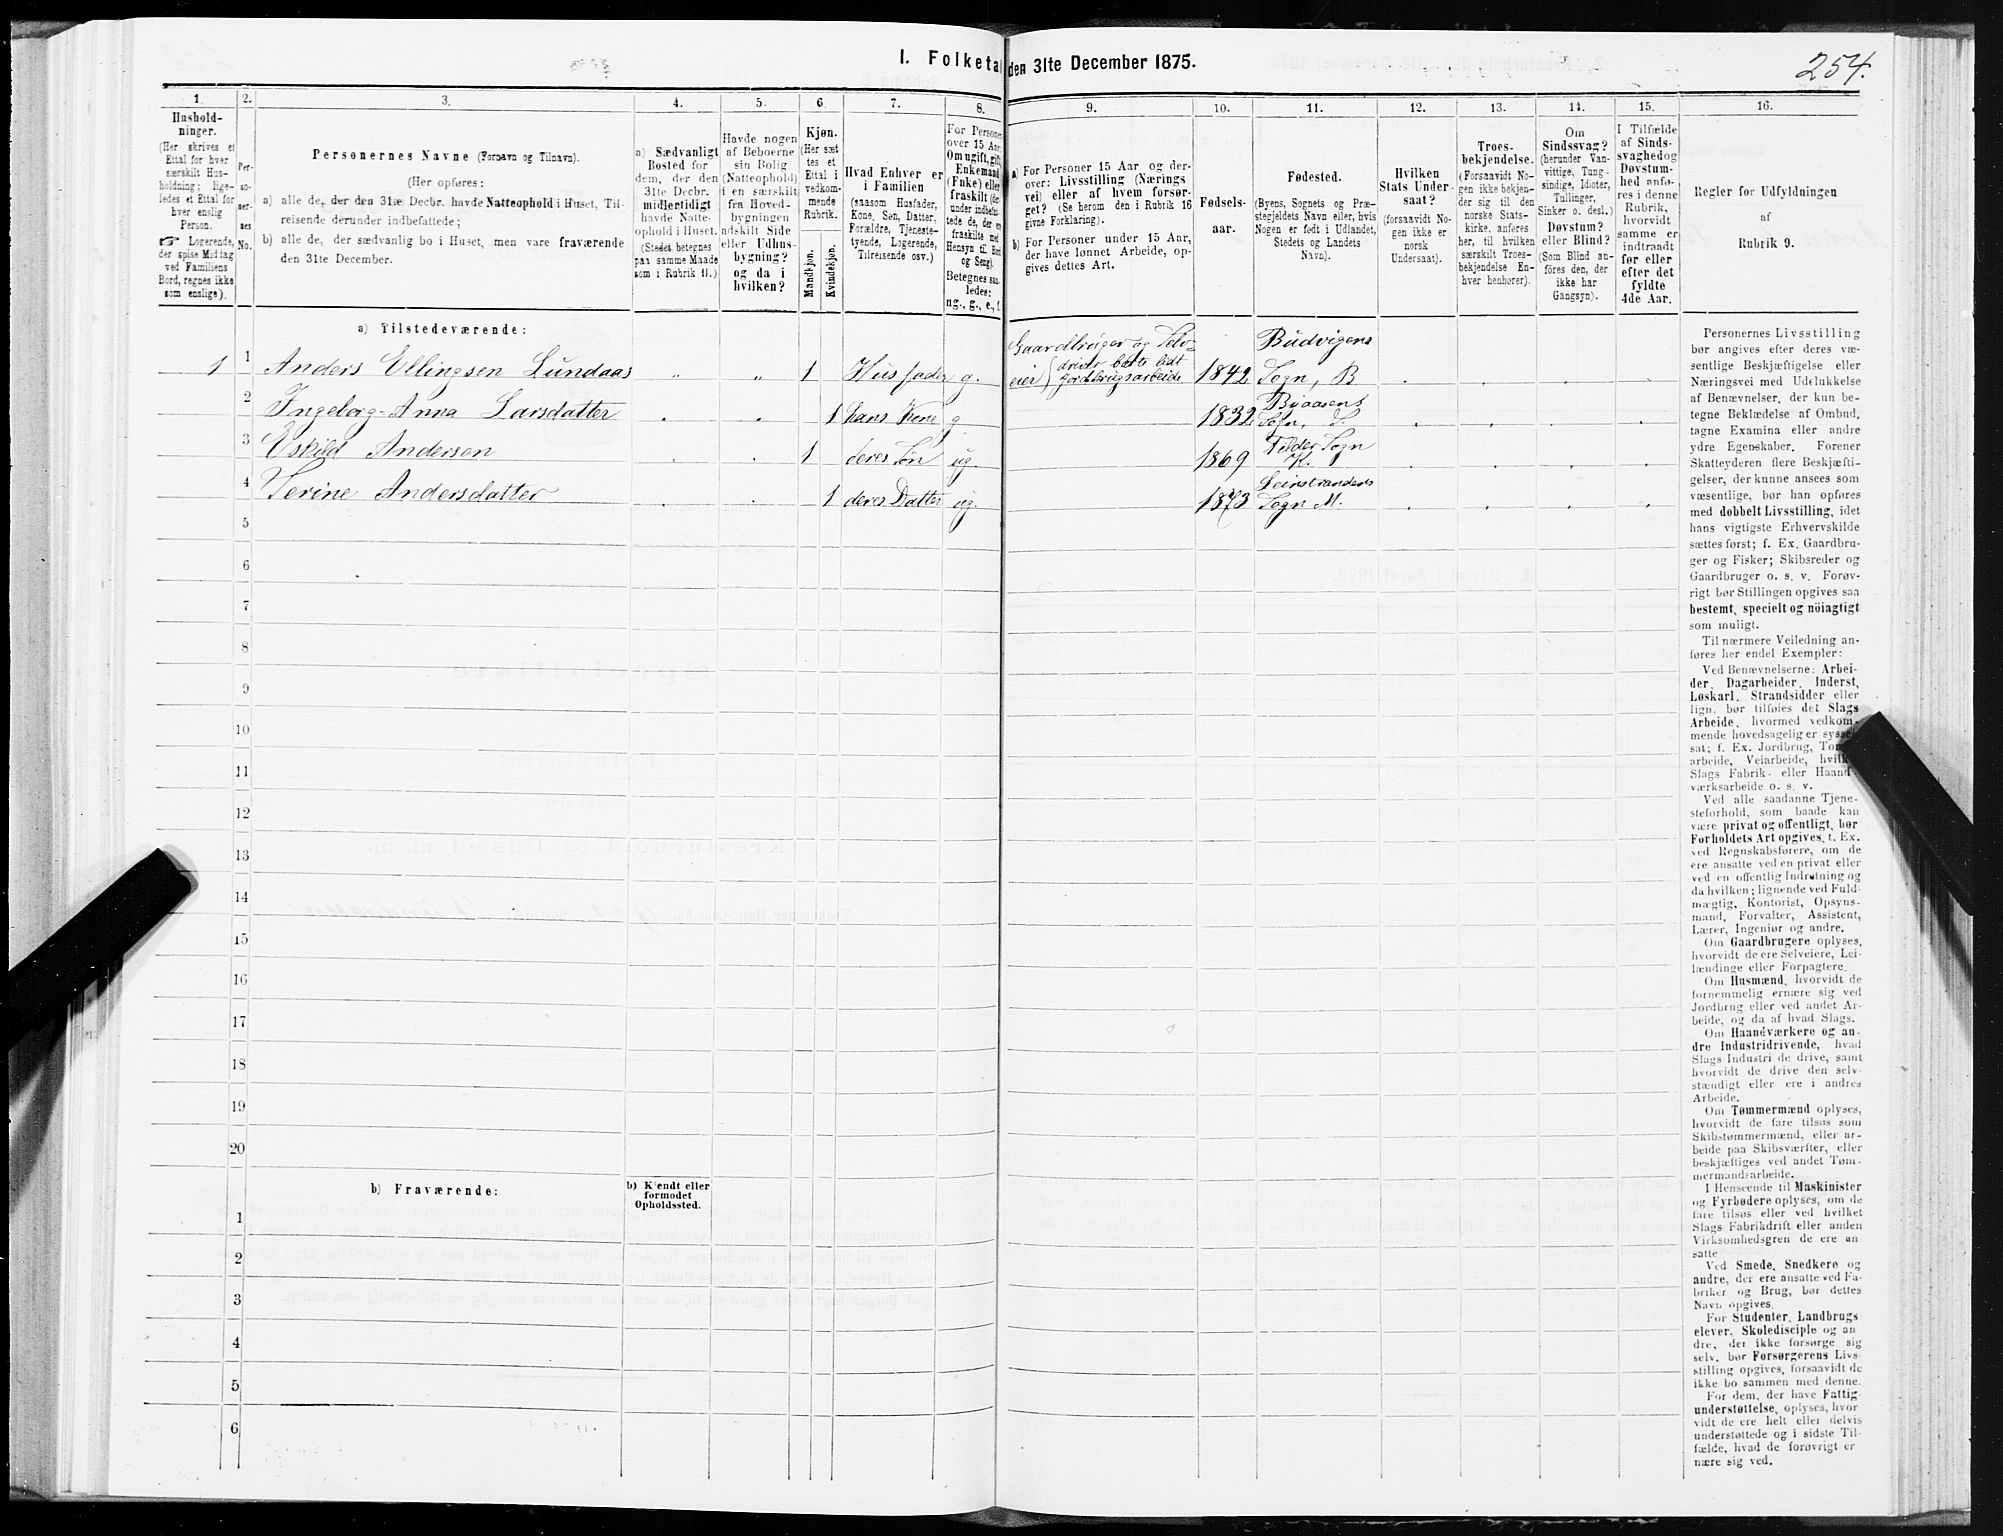 I. Folketa
den 31te December 1875.
254.
1.
2.
3.
4.
5.
6.
7.
8.
9.
10.
11.
12.
13.
14.
15.
16.
Hushold-
ninger.
(Her skrives et
Ettal for hver
særskilt Hus-
holdning; lige-
ledes et Ettal for
hver enslig
Person.
☞ Logerende,
der spise Middag
ved Familiens
Bord, regnes ikke
som enslige).
Per-
so-
ner-
nes
No.
Personernes Navne (Fornavn og Tilnavn).
(Her opføres:
a) alle de, der den 31te Decbr. havde Natteophold i Huset, Til-
reisende derunder indbefattede;
b) alle de, der sædvanlig bo i Huset, men vare fraværende
den 31te December.
a) Sædvanligt
Bosted for
dem, der den
31te Decbr.
midlertidigt
havde Natte-
ophold i Huset.
(Stedet betegnes
paa samme Maade
som i Rubrik 11.)
Havde nogen
af Beboerne
sin Bolig
(Natteophold)
i en særskilt
fra Hoved-
bygningen
adskilt Side
eller Udhus-
bygning?
og da i
hvilken?
Kjøn.
(Her sæt
tes et
Ettal i
vedkom-
mende
Rubrik.
Mandkjøn.
Kvindekjøn.
Hvad Enhver er
i Familien
(saasom Husfader,
Kone, Søn, Datter,
Forældre, Tjeneste-
tyende, Logerende,
Tilreisende osv.)
For Personer
over 15 Aar:
Om ugift, gift,
Enkemand
(Enke) eller
fraskilt (der-
under indbefat-
tede de, der ere
fraskilte med
Hensyn til Bord
og Seng).
Betegnes saa-
ledes:
ug., g., e., f.
a) For Personer 15 Aar og der-
over: Livsstilling (Nærings
vei) eller af hvem forsør-
get? (Se herom den i Rubrik 16
givne Forklaring).
b) For Personer under 15 Aar,
der have lønnet Arbeide, op-
gives dettes Art.
Fødsels-
aar.
Fødested.
(Byens, Sognets og Præ-
stegjeldets Navn eller, hvis
Nogen er født i Udlandet,
Stedets og Landets
Navn).
Hvilken
Stats Under-
saat?
(forsaavidt No-
gen ikke er
norsk
Undersaat).
Troes-
bekjendelse.
(Forsaavidt No-
gen ikke bekjen-
der sig til den
norske Stats-
kirke, anføres
her, til hvilken
særskilt Troes-
bekjendelse En-
hver henhører).
Om
Sindssvag?
(herunder Van-
vittige, Tung-
sindige, Idioter,
Tullinger,
Sinker o. desl.)
Døvstum?
eller Blind?
(Som Blind an-
føres den, der
ikke har
Gangsyn).
I Tilfælde
af Sinds-
svaghed og
Døvstum-
hed anfø-
res i denne
Rubrik,
hvorvidt
samme er
indtraadt
før eller
efter det
fyldte
4de Aar.
Regler for Udfyldningen
af
Rubrik 9.
a) Tilstedeværende:
1 1 Anders Ellingsen Lundaas „ „ 1 Husfader g. Gaardbruger og Selv-
eier {driver baate lidt
Jordbrugsarbeide 1842 Budvigens
Sogn, B
2 Ingeborg-Anna Larsdatter 1 hans Kone g 1832 Buaasens
Sogn, S.
3 Eskild Andersen 1 deres Søn ug. 1869 Tilder Sogn
K.
4 Serine Andersdatter 1 deres Datter ug. 1873 Leinstrandens
Sogn M.
5
6
7
8
9
10
11
12
13
14
15
16
17
18
19
20
b) Fraværende:
b) Kjendt eller
formodet
Opholdssted.
1
2
3
4
5
6
Personernes Livsstilling
bør angives efter deres væ-
sentlige Beskjæftigelse eller
Næringsvei med Udelukkelse
af Benævnelser, der kun be-
tegne Beklædelse af Ombud,
tagne Examina eller andre
ydre Egenskaber. Forener
Skatteyderen flere Beskjæfti-
gelser, der kunne ansees som
væsentlige, bør han opføres
med dobbelt Livsstilling, idet
hans vigtigste Erhvervskilde
sættes først; f. Ex. Gaardbru-
ger og Fisker; Skibsreder og
Gaardbruger o. s. v. Forøv-
rigt bør Stillingen opgives saa
bestemt, specielt og nöiagtigt
som muligt.
Til nærmere Veiledning an-
føres her endel Exempler:
Ved Benævnelserne: Arbei-
der, Dagarbeider, Inderst,
Løskarl, Strandsidder eller
lign. bør tilføies det Slags
Arbeide, hvormed vedkom-
mende hovedsagelig er syssel
sat; f. Ex. Jordbrug, Tom
arbeide, Veiarbeide, hvilk
Slags Fabrik- eller Haand-
værksarbeide o. s. v.
Ved alle saadanne Tjene-
steforhold, som baade kan
være privat og offentligt, bør
Forholdets Art opgives, f. Ex.
ved Regnskabsførere, om de
ere ansatte ved en privat eller
ved en offentlig Indretning og
da hvilken; lignende ved Fuld-
mægtig, Kontorist, Opsyns-
mand, Forvalter, Assistent,
Lærer, Ingeniør og andre.
Om Gaardbrugere oplyses,
hvorvidt de ere Selveiere, Lei-
lændinge eller Forpagtere.
Om Husmænd, hvorvidt de
fornemmelig ernære sig ved
Jordbrug eller ved andet Ar-
beide, og da af hvad Slags.
Om Haandværkere og an-
dre Industridrivende, hvad
Slags Industri de drive, samt
hvorvidt de drive den selv-
stændigt eller ere i andres
Arbeide.
Om Tømmermænd oplyses,
hvorvidt de fare tilsøs som
Skibstømmermænd, eller ar-
beide paa Skibsværfter, eller
beskjæftiges ved andet Tøm-
mermandsarbeide.
I Henseende til Maskinister
og Fyrbødere oplyses, om de
fare tilsøs eller ved hvilket
Slags Fabrikdrift eller anden
Virksomhedsgren de ere an
satte
Ved Smede, Snedkere og
andre, der ere ansatte ved Fa-
briker og Brug, bør dettes
Navn opgives.
For Studenter, Landbrugs
elever, Skoledisciple og an
dre, der ikke forsørge sig
selv, bør Forsørgerens Livs-
stilling opgives, forsaavidt de
ikke bo sammen med denne.
For dem, der have Fattig-
understøttelse, oplyses, hvor
vidt de ere helt eller delvis
understøttede og i sidste Til-
fælde, hvad de forøvrigt er
nære sig ved.